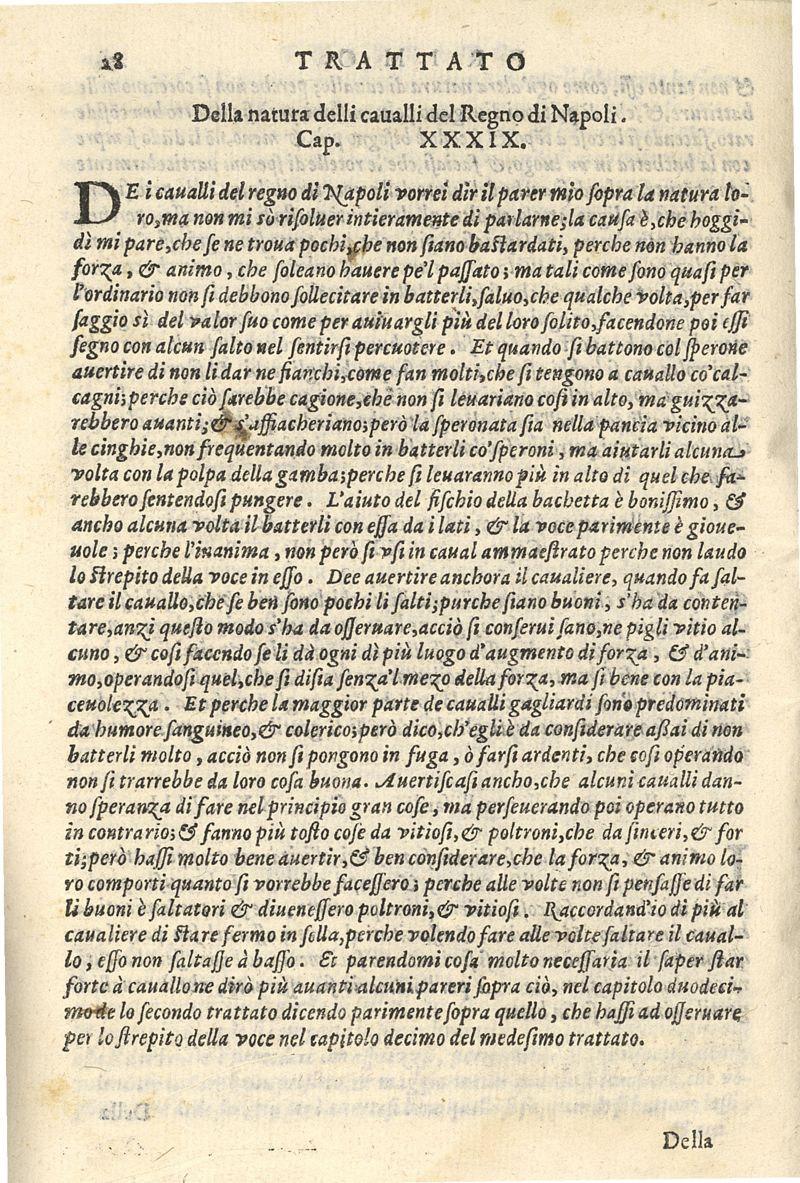 28 TRATTATO
Della natura delli caualli del Regno di Napoli.
Cap. XXXIX.
DE i caualli del regno di Napoli vorrei dir il parer mio sopra la natura lo-
ro, ma non mi sò risoluer intieramente di parlarne; la causa è, che hoggi-
dì mi pare, che se ne troua pochi, che non siano bastardati, perche non hanno la
forza, & animo, che soleano hauere pe'l passato; ma tali come sono quasi per
l'ordinario non si debbono sollecitare in batterli, saluo, che qualche volta, per far
saggio sì del valor suo come per auiuargli più del loro solito, facendone poi essi
segno con alcun salto nel sentirsi percuotere. Et quando si battono col sperone
auertire di non li dar ne fianchi, come fan molti, che si tengono a cauallo co'cal-
cagni; perche ciò sarebbe cagione, che non si leuariano così in alto, ma guizza-
rebbero auanti; & s'affiacheriano; però la speronata sia nella pancia vicino al-
le cinghie, non frequentando molto in batterli co'speroni, ma aiutarli alcuna
volta con la polpa della gamba; perche si leuaranno più in alto di quel che fa-
rebbero sentendosi pungere. L'aiuto del fischio della bachetta è bonissimo, &
ancho alcuna volta il batterli con essa da i lati, & la voce parimente è gioue-
uole; perche l'inanima, non però si vsi in caual ammaestrato perche non laudo
lo strepito della voce in esso. Dee auertire anchora il caualiere, quando fa sal-
tare il cauallo, che se ben sono pochi li salti; purche siano buoni, s'ha da conten-
tare, anzi questo modo s'ha da osseruare, acciò si conserui sano, ne pigli vitio al-
cuno, & così facendo se li dà ogni dì più luogo d'augmento di forza, & d'ani-
mo, operandosi quel, che si disia senza'l mezo della forza, ma si bene con la pia-
ceuolezza. Et perche la maggior parte de caualli gagliardi sono predominati
da humore sanguineo, & colerico; però dico, ch'egli è da considerare assai di non
batterli molto, acciò non si pongono in fuga, ò farsi ardenti, che così operando
non si trarrebbe da loro cosa buona. Auertiscasi ancho, che alcuni caualli dan-
no speranza di fare nel principio gran cose, ma perseuerando poi operano tutto
in contrario; & fanno più tosto cose da vitiosi, & poltroni, che da sinceri, & for
ti; però hassi molto bene auertir, & ben considerare, che la forza, & animo lo-
ro comporti quanto si vorrebbe facessero; perche alle volte non si pensasse di far
li buoni è saltatori & diuenessero poltroni, & vitiosi. Raccordand'io di più al
caualiere di stare fermo in sella, perche volendo fare alle volte saltare il caual-
lo, esso non saltasse à basso. Et parendomi cosa molto necessaria il saper star
forte à cauallo ne dirò più auanti alcuni pareri sopra ciò, nel capitolo duodeci-
mo de lo secondo trattato dicendo parimente sopra quello, che hassi ad osseruare
per lo strepito della voce nel capitolo decimo del medesimo trattato.
Della